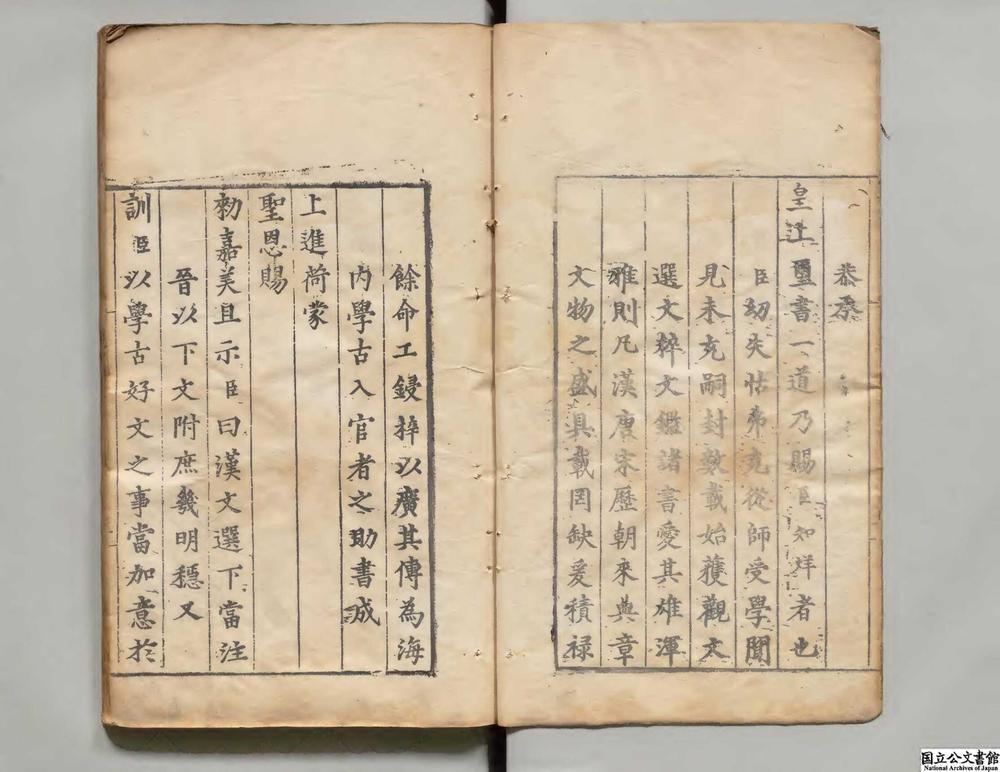 恭承
皇上璽書一道乃賜臣知烊者也
臣幼失怙弗克從師受學聞
見未充嗣封數載始獲觀文
選文粹文鑑諸書愛其雄渾
雅則凡漢唐宋歷朝來典章
文物之盛具載罔缺爰積祿
餘命工鋟梓以廣其傳為海
內學古入官者之助書成
上進荷蒙
聖恩賜
勑嘉美且示臣曰漢文選下當注
晉以下文附庶幾明穩又
訓臣以學古好文之事當加意於
国立公文書館
National Archives of Japan